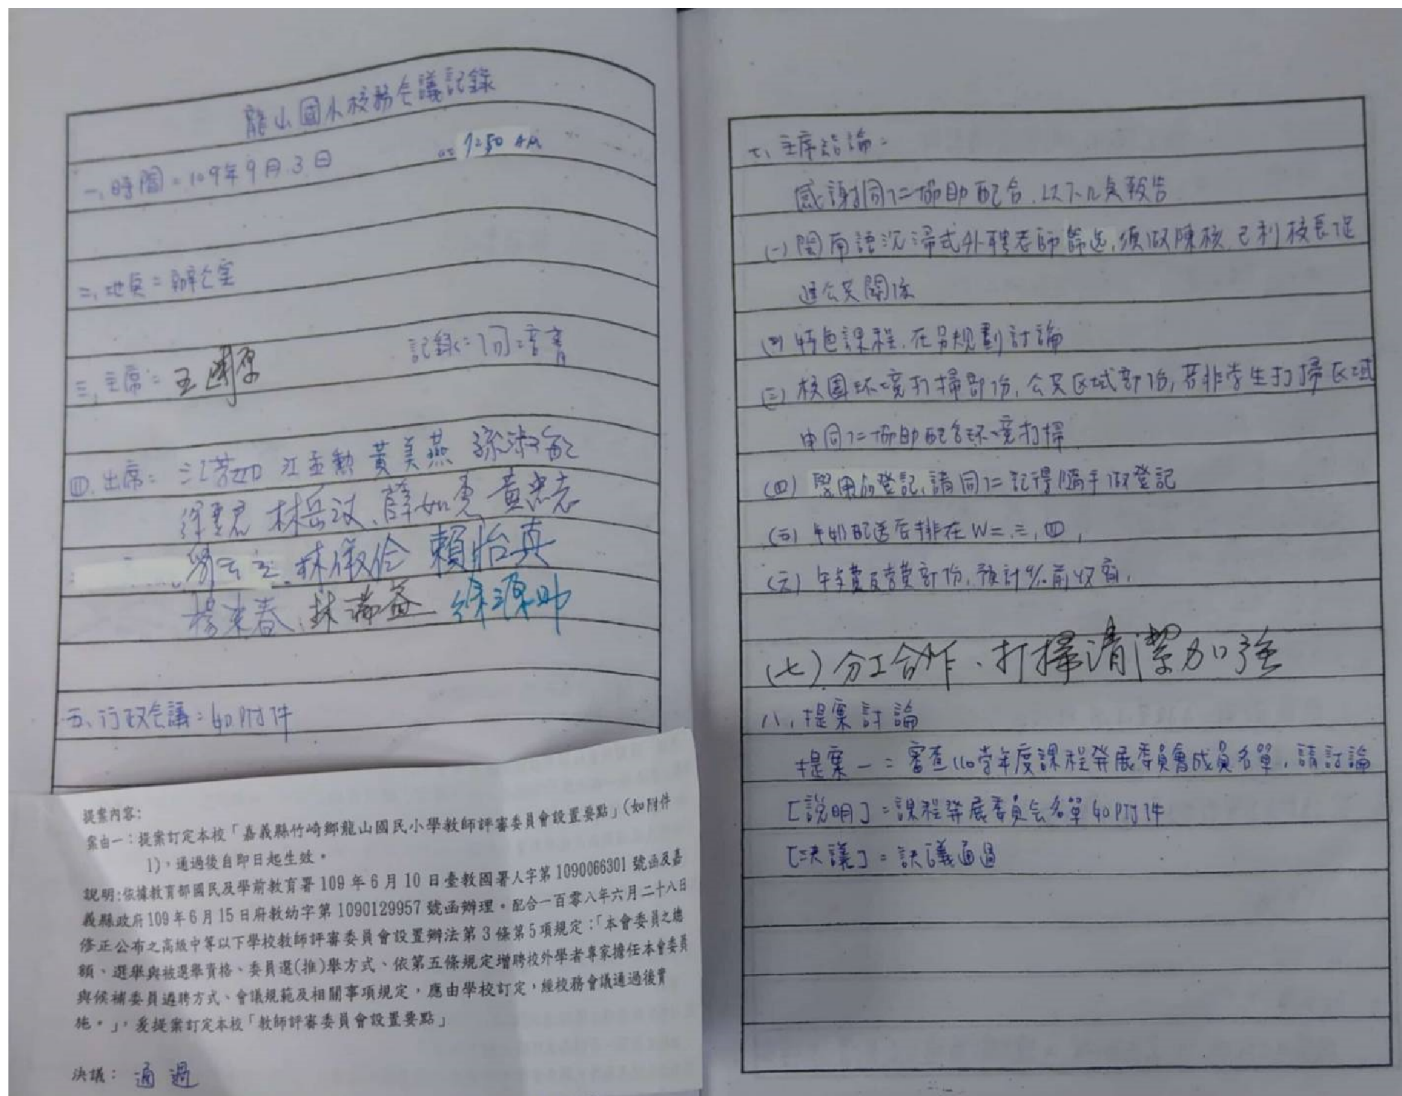 龍山國小校務会議記錄
一、時間：109年9月3日
9:50 AM
二、地點：辦公室
三、主席：王
記錄：
四、出席： 江孟勳 黃美燕 孫淑
林岳 薛如 黃
林 賴怡真
楊来春、林滿
五、行政会議：如附件
提案內容：
案由一：提案訂定本校「嘉義縣竹崎鄉龍山國民小學教師評審委員會設置要點」(如附件
1)，通過後自即日起生效。
說明:依據教育部國民及學前教育署 109 年 6 月 10 日臺教國署人字第 1090066301 號函及嘉
義縣政府 109 年 6 月 15 日府教幼字第 1090129957 號函辦理。配合一百零八年六月二十八日
修正公布之高級中等以下學校教師評審委員會設置辦法第 3 條第 5 項規定：「本會委員之總
額、選舉與被選舉資格、委員選(推)舉方式、依第五條規定增聘校外學者專家擔任本會委員
與候補委員遴聘方式、會議規範及相關事項規定，應由學校訂定，經校務會議通過後實
施。」，爰提案訂定本校「教師評審委員會設置要點」
決議： 通過
七、主席結論：
感謝同仁協助配合，以下幾點報告
(一) 閩南語沉浸式外聘老師篩选，須做陳核，已利校長促
進公共關係
(二) 特色課程，在另規劃討論
(三) 校園环境打掃部份，公共区域部份，若非学生打掃区域
由同仁協助配合环境打掃
(四) 登記，請同仁記得隨手做登記
(五) 牛奶配送安排在W二、三、四，
(六) 午餐費部份，預計 前收齊，
(七) 分工合作、打掃清潔加強
八、提案討論
提案一：審查110学年度課程發展委員會成員名單，請討論
[說明]：課程發展委員会名單如附件
[决議]：決議通過